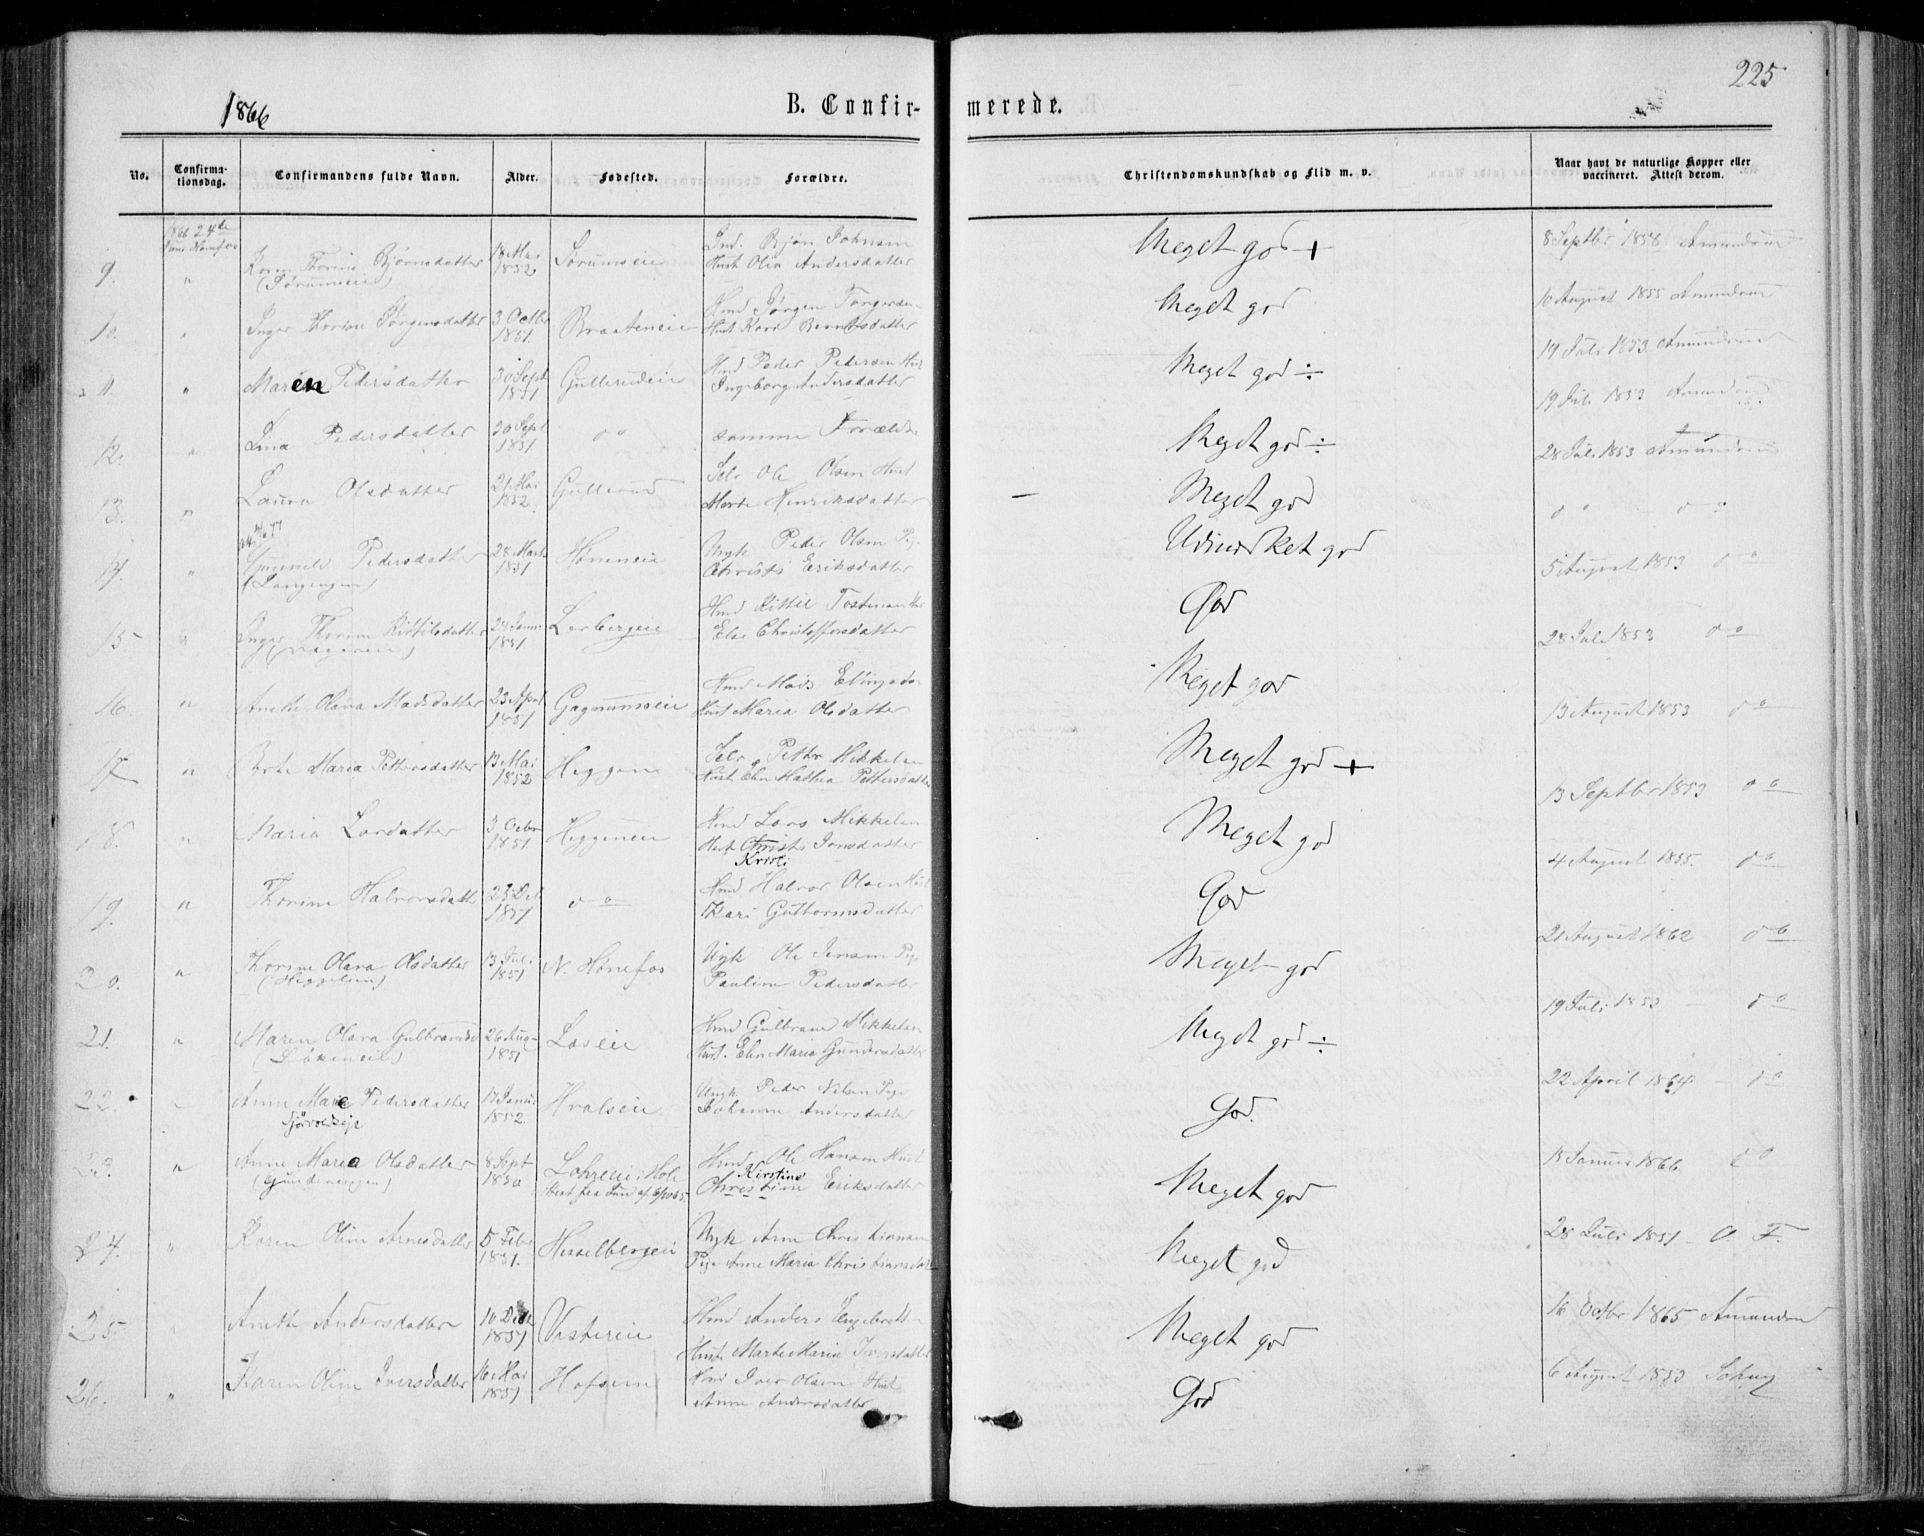 225
1866
B. Confir- merede.
No. Confirma-tionsdag. Confirmandens fulde Navn. Alder. Fødested. Forældre. Christendomskundskab og Flid m. v. Naar havt de naturlige Kopper eller vaccineret. Attest derom.
1866 24de
9. " Karen Thorine Bjørnsdatter 18 Mai 1852 Sørumseie Ind. Bjørn Johnsen Meget god + 8 Septbr 1858 Amundsen
Hust Olia Andersdatter
10. " Inger Thorine Jørgensdatter 3 Octbr 1851 Braateneie Hmd Jørgen Torgersen Meget god 10 August 1855 Amundsen
Hust Kari Berntsdatter
11. " Maren Pedersdatter 30 Sept 1851 Gullerudeie Hmd Peder Pedersen Hust Meget god ÷ 19 Juli 1853 Amundsen
Ingeborg Andersdatter
12. " Lina Pedersdatter 30 Sept 1851 do samme Forældre Meget god ÷ 19 Juli 1853 Amundsen
13. " Laura Olsdatter 21 Mai 1852 Gullerud Selv Ole Olsen Hust Meget god 28 Juli 1853 Amundsen
Marte Henriksdatter
14. " Gunnild Pedersdatter 28 Marts 1851 Høneneie Ungk Peder Olsen Pige Udmærket god do do
Christi Eriksdatter
15 " Inger Thorine Kittilsdatter 24 Janu 1851 Lerbergeie Hmd Kittil Tostensen Hust God 5 August 1853 do
Else Christoffersdatter
16 " Anethe Olava Madsdatter 23 April 1851 Gagnumseie Hmd Mads Elingsen Meget god 28 Juli 1853 do
Hust Maria Olsdatter
17 " Berte Maria Pettersdatter 13 Mai 1852 Heggen Selv Petter Mikkelsen Meget god + 13 August 1853 do
Hust Elen Mathea Pettersdatter
18. " Maria Larsdatter 3 Octbr 1851 Heggeneie Hmd Lars Mikkelsen Meget god 13 Septbr 1853 do
Hust Christi Jonsdatter
Kristi
19. " Thorine Halvorsdatter 23 Dec 1851 do Hmd Halvor Olsen Hust God 4 August 1855. do
Kari Guttormsdatter
20. " Thorine Olava Olsdatter 13 Juli 1851 N. Hønefos Ungk Ole Jensen Pige Meget god 21 August 1862 do
Pauline Pedersdatter
21. " Maren Olava Gulbransd 26 Aug 1851 Loseie Hmd Gulbrand Mikkelsen Meget god ÷ 19 Juli 1853 do
Hust. Elen Maria Gundersdatter
22. Anne Marie Pedersdatter 17 Janua 1852 Hvalseie Ungk Peder Nilsen Pige God. 22 April 1864 do
Johanne Andersdatter
23. " Anne Maria Olsdatter 8 Sept 1850 Lohreeie i Hole Hmd Ole Hansen Hust Meget god 15 Januar 1866 do
Kirstine
Christine Eriksdatter
24. " Karen Oline Arnesdatter 5 Febr 1851. Hesselbergeie Ungk Arne Christiansen Meget god 28 Juli 1851 O. F.
Pige Anne Maria Christiansdatter
25. Anethe Andersdatter 10 Decbr 1851 Vestereie Hmd Anders Engebretsen Meget god 16 Octbr 1865 Amundsen
Hust Marte Maria Iversdatter
26. " Karen Oline Iversdatter 16 Mai 1851 Hofseie Hmd Iver Olsen Hust God 6 August 1853
Anne Andersdatter